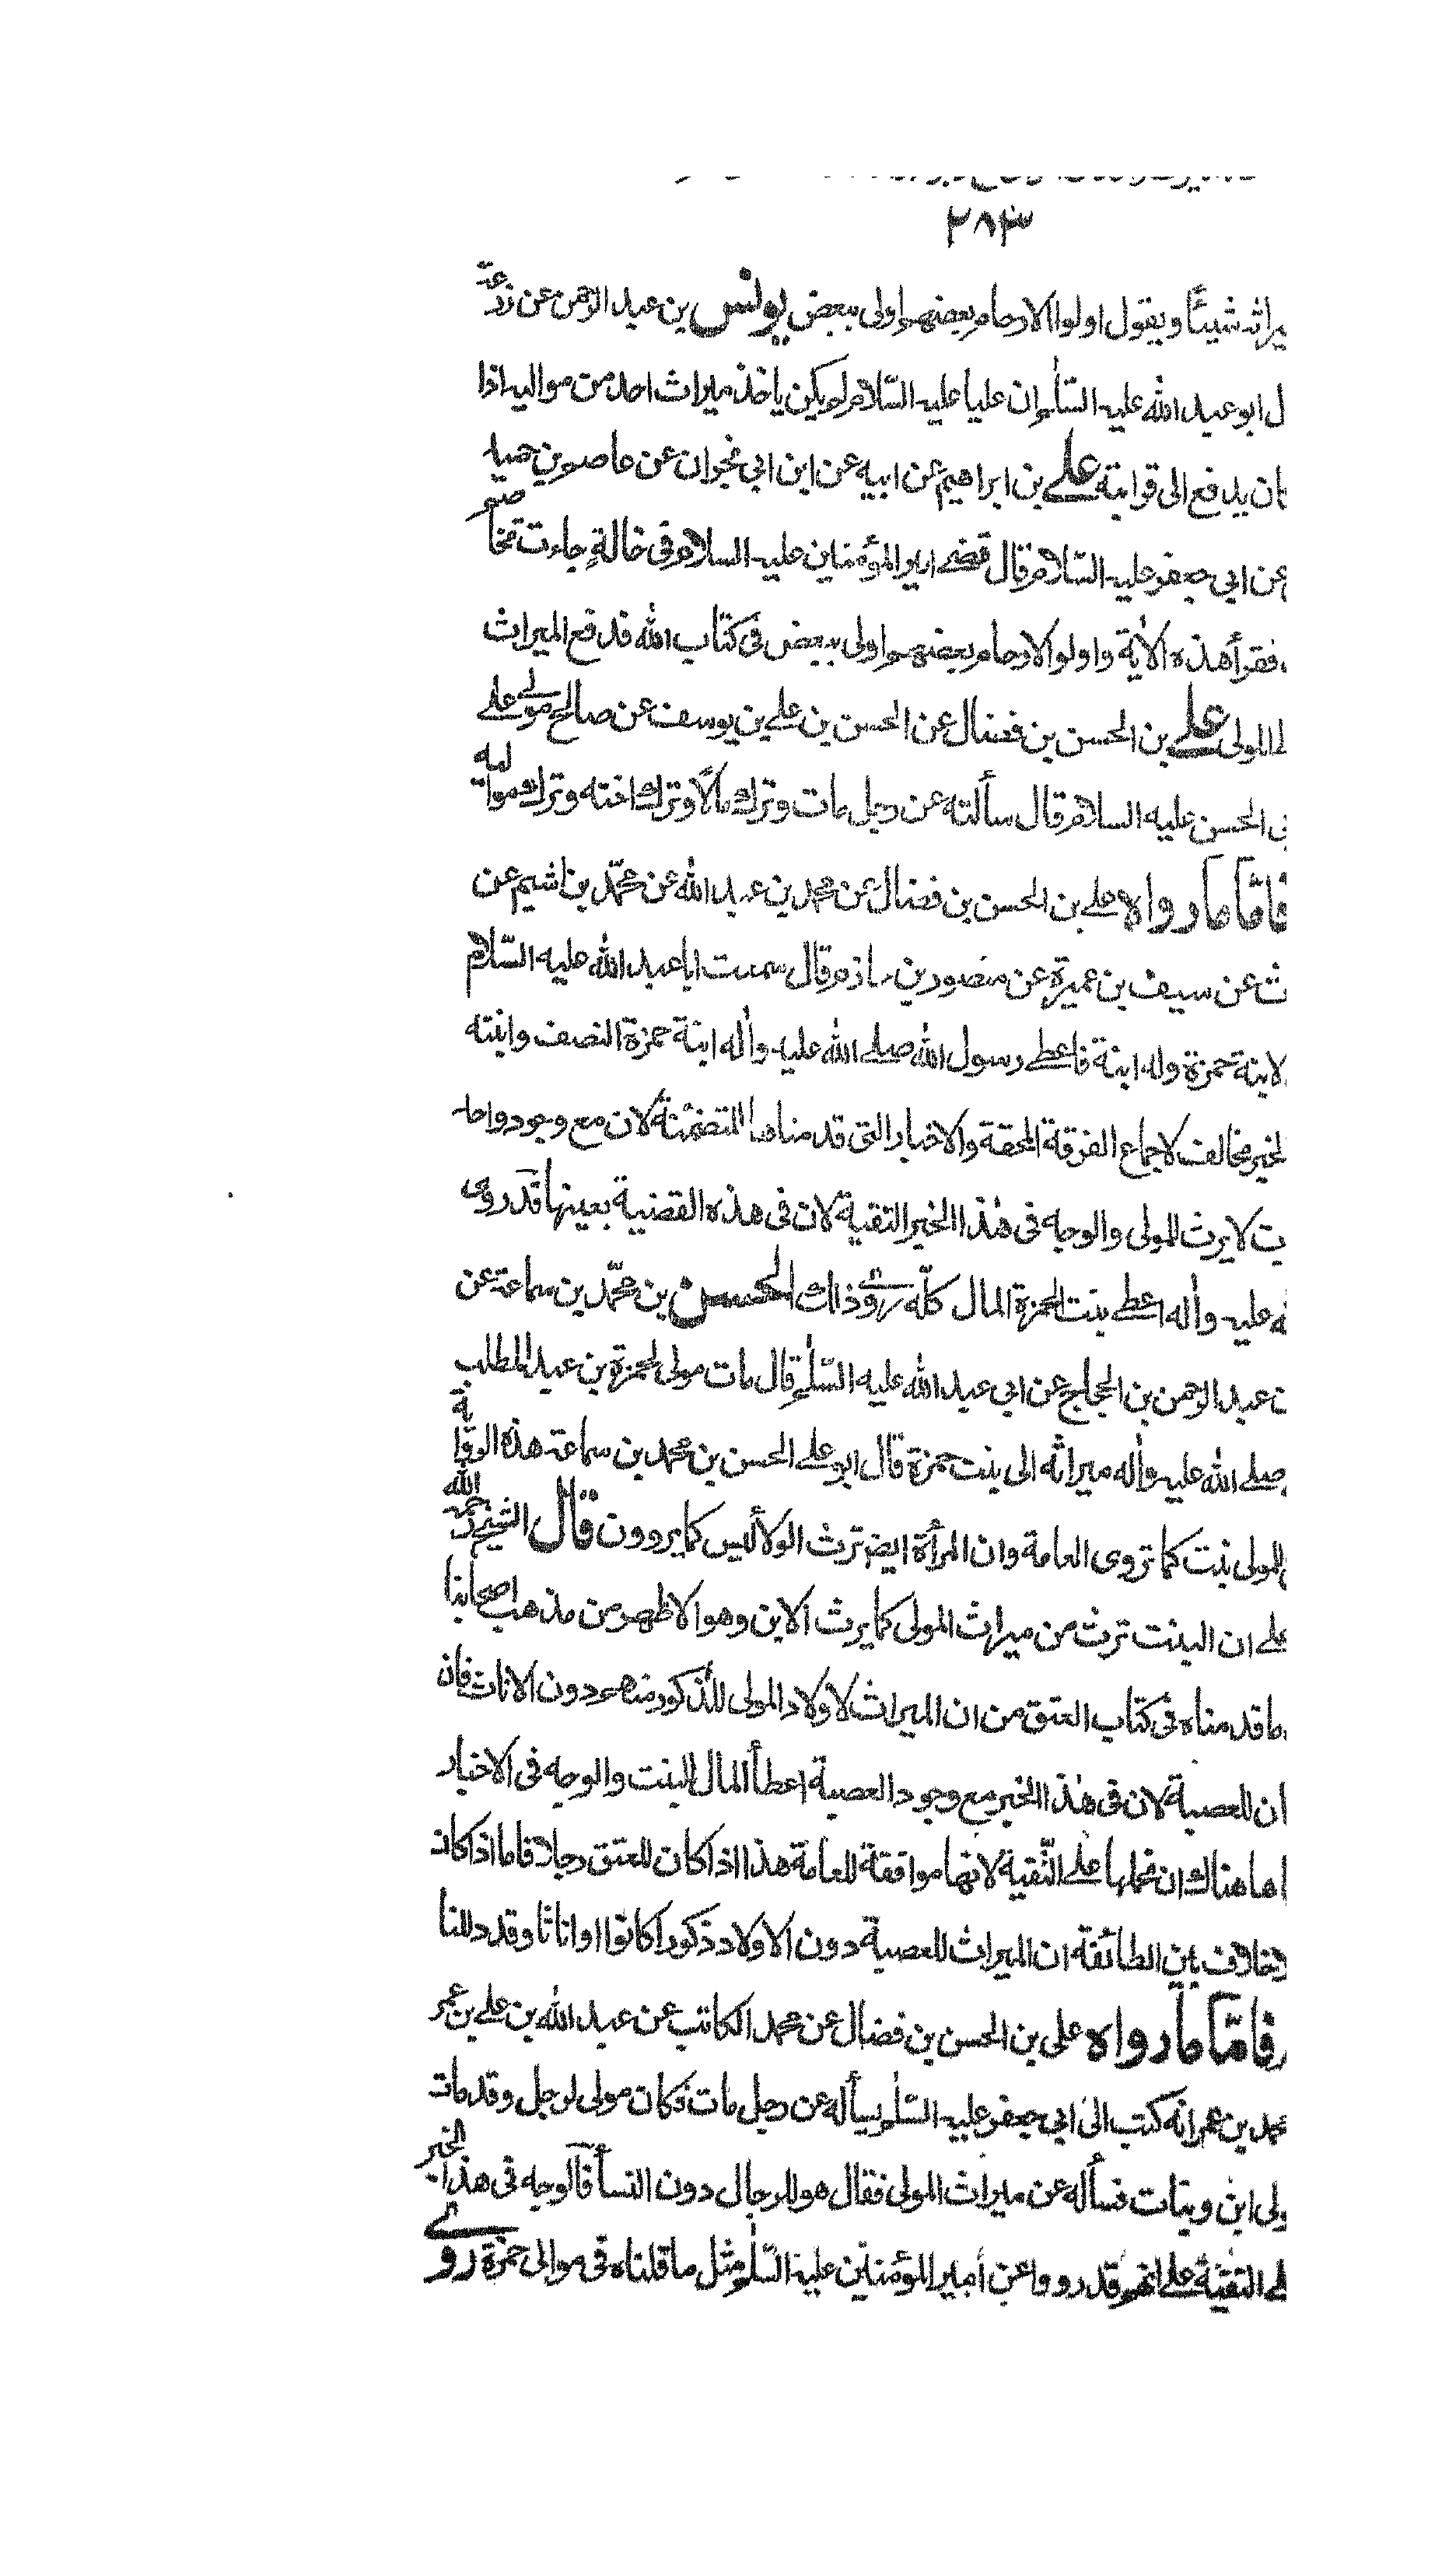 ٢٨٣
يراثه شيئًا ويقول اولوا الارحام بعضهم اولى ببعض يونس بن عبد الرحمن عن زرعة
ل ابو عبد الله عليه السّلم ان عليا عليه السّلام لم يكن ياخذ ميراث احد من مواليه اذا
كان يدفع الى قرابته علي بن ابراهيم عن ابيه عن ابن ابي نجران عن عاصم بن حميد
عن ابي جعفر عليه السّلام قال قضى امير المؤمنين عليه السلام في خالةٍ جاءت تخاصم
فقرأ هذه الاٰية واولو الارحام بعضهم اولى ببعض في كتاب الله فدفع الميراث
المولى علي بن الحسن بن فضال عن الحسن بن علي بن يوسف عن صالح مولى علي
بى الحسن عليه السلام قال سألته عن رجل مات وترك مالًا وترك اخته وترك مواليه
فامّا ما رواه علي بن الحسن بن فضال عن محمد بن عبد الله عن محمّد بن اشيم عن
ث عن سيف بن عميرة عن منصور بن حازم قال سمعت ابا عبد الله عليه السّلام
لابنة حمزة وله ابنة فاعطى رسول الله صلى الله عليه واٰله ابنة حمزة النصف وابنته
لخبر مخالف لاجماع الفرقة المحقة والاخبار التي قدمناها المتضمّنة لان مع وجود واحد
يت لا يرث المولى والوجه في هٰذا الخبر التقية لان في هذه القضية بعينها قد روى
له عليه واٰله اعطى بنت الحمزة المال كلّه روى ذلك الحسن بن محمّد بن سماعة عن
ن عبد الرحمن بن الحجاج عن ابي عبد الله عليه السّلم قال مات مولى لحمزة بن عبد المطلب
صلى الله عليه واٰله ميراثه الى بنت حمزة قال ابو علي الحسن بن محمد بن سماعة هذه الرواية
المولى بنت كما تروى العامة وان المرأة ايضم ترث الولاء ليس كما يروون قال الشيخ رحمه الله
على ان البنت ترث من ميراث المولى كما يرث الابن وهو الاظهر من مذهب اصحابنا
ما قدمناه في كتاب العتق من ان الميراث لاولاد المولى للذكور منهم دون الاناث فان
ان للعصبة لان في هٰذا الخبر مع وجود العصبة اعطأ المال البنت والوجه في الاخبار
اها هناك ان نحملها على التّقية لانها موافقة للعامة هذا اذا كان المعتق رجلا فاما اذا كانت
لاخلاف بين الطائفة ان الميراث للعصبة دون الاولاد ذكورا كانوا او اناثا وقد دللنا
فامّا ما رواه علي بن الحسن بن فضال عن محمد الكاتب عن عبد الله بن علي بن عمر
محمد بن عمر انه كتب الى ابي جعفر عليه السّلم يسأله عن رجل مات وكان مولى لرجل وقد مات
ولى ابن وبنات فسأله عن ميراث المولى فقال هو للرجال دون النسأ فالوجه في هذا الخبر
لى التقيّة على انهم قد رووا عن أمير المؤمنين عليه السّلم مثل ما قلناه في موالى حمزة روى